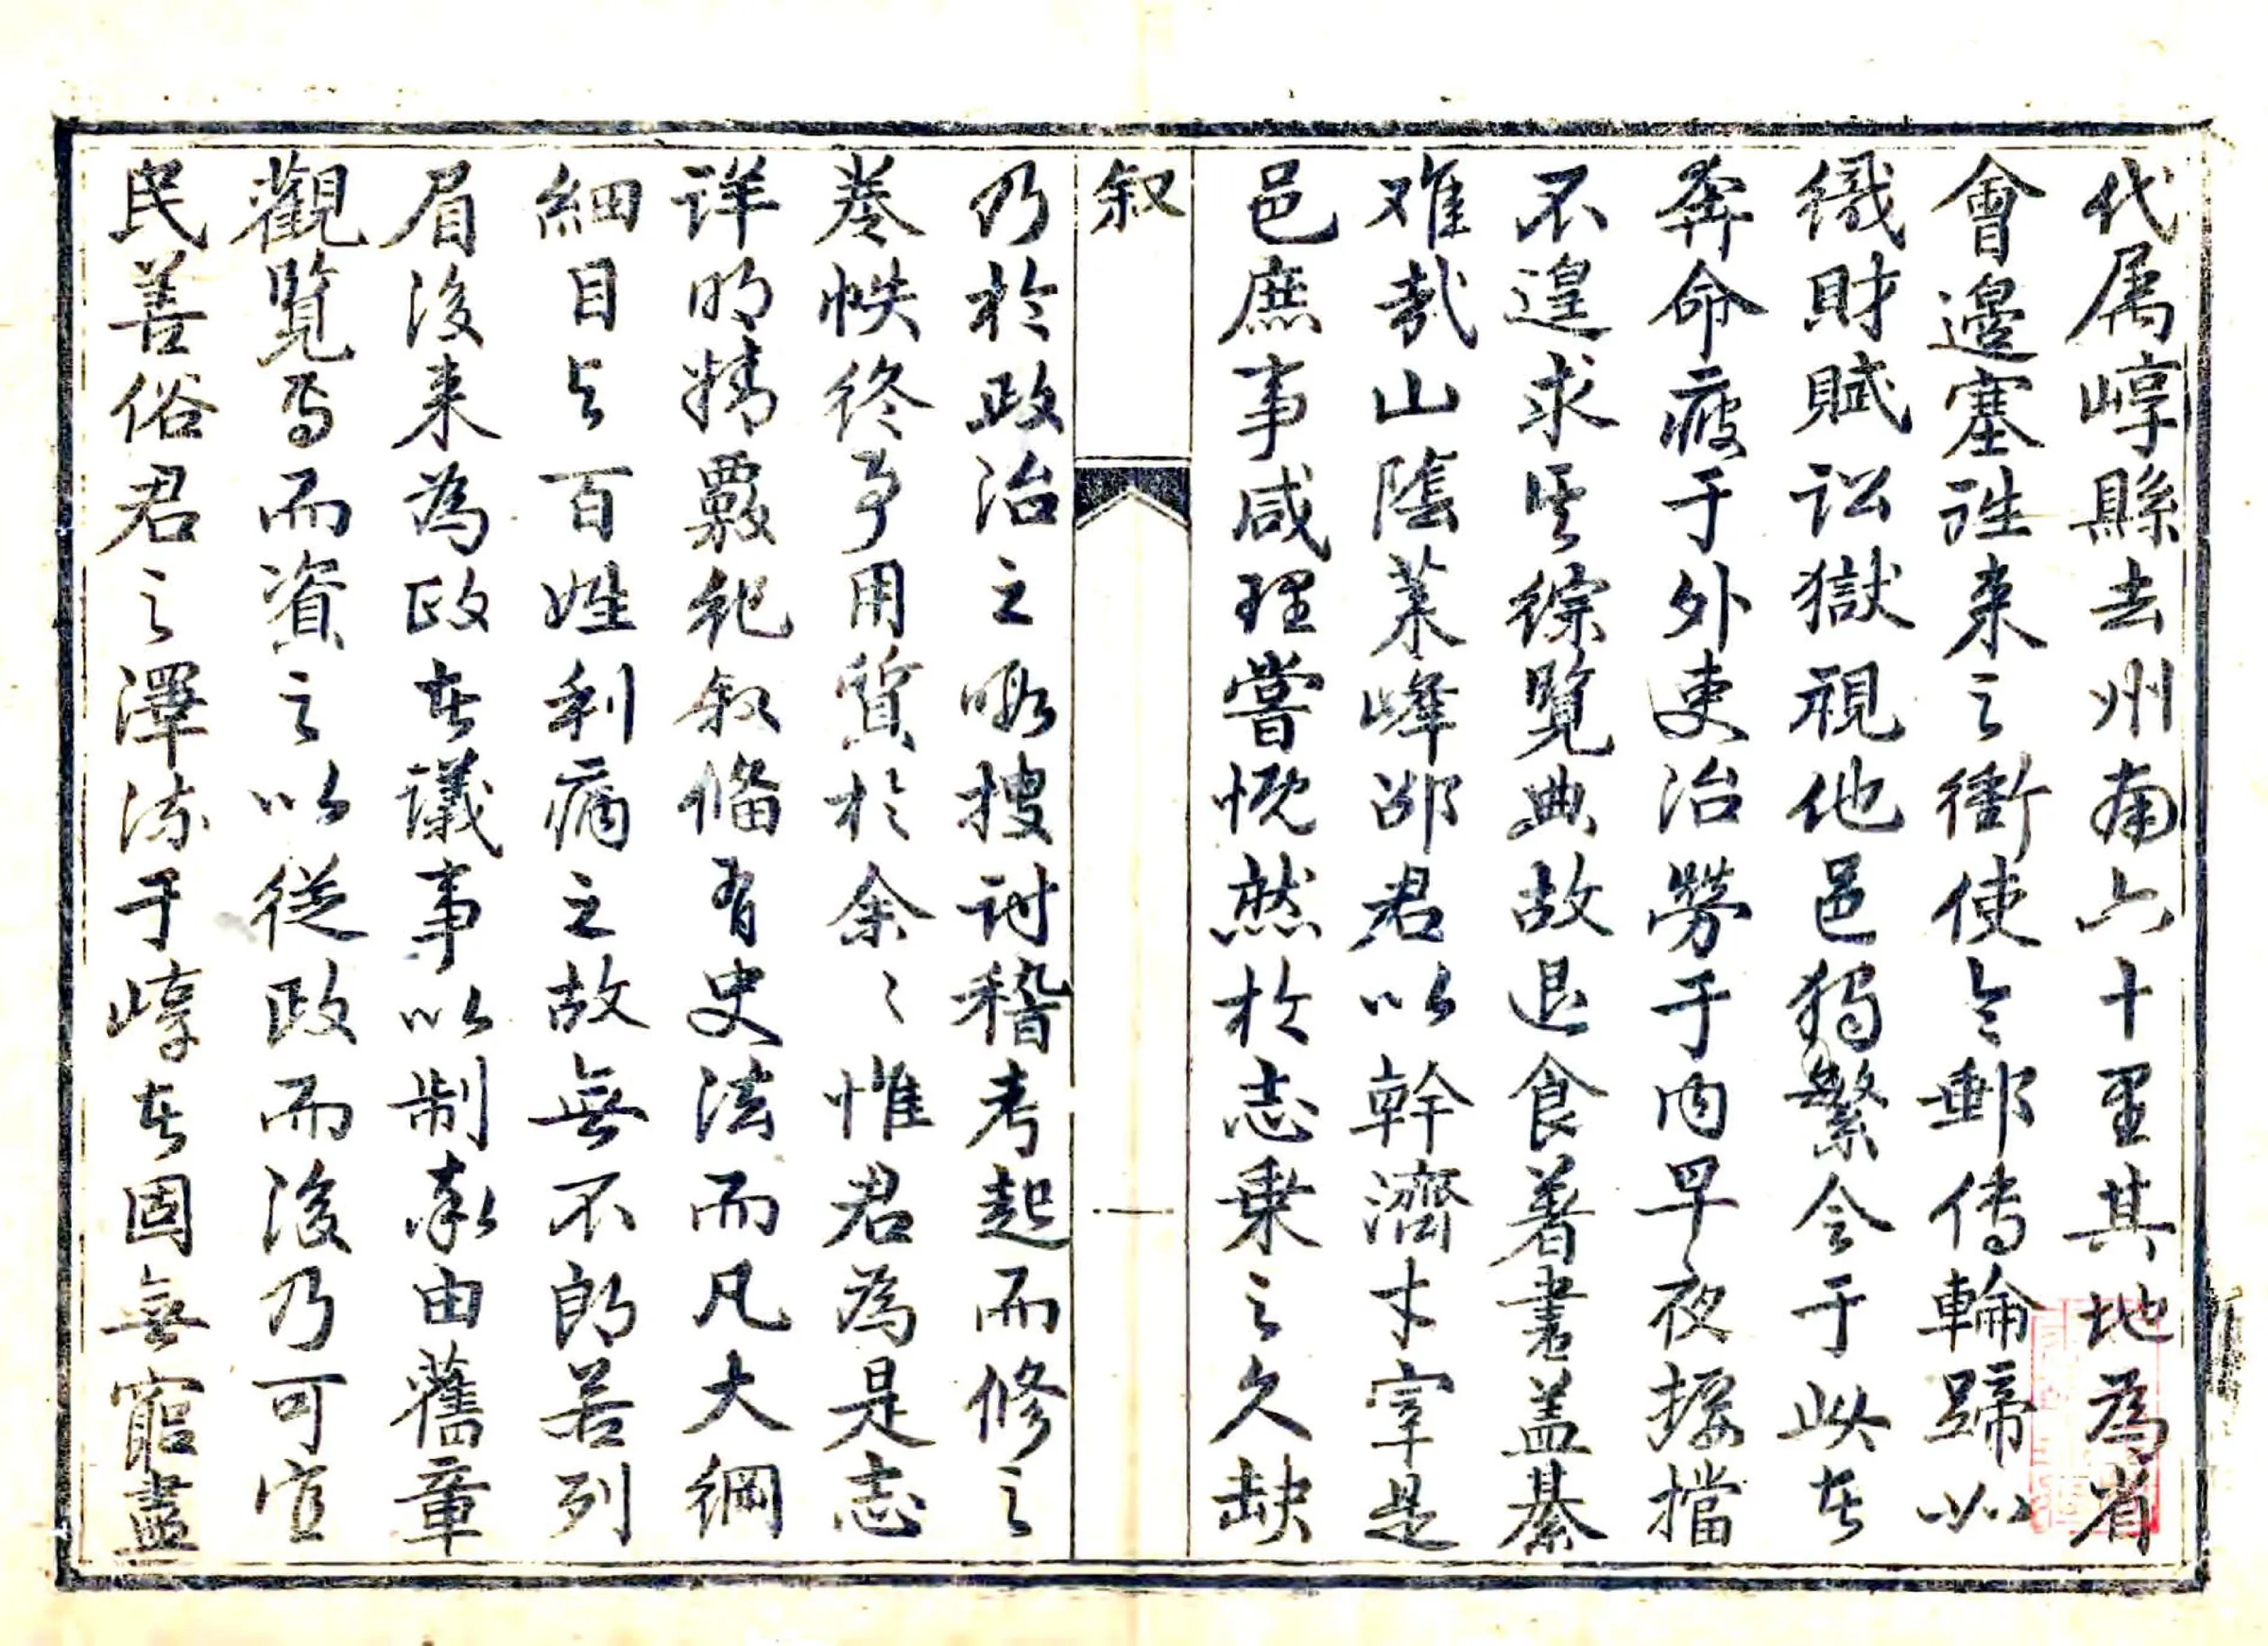 代属崞縣去州南六十里其地為省
會邊塞往来之衝使令郵傳輪蹄如
織財賦訟獄視他邑獨繁令于此者
奔命疲于外吏治勞于内早夜摒擋
不遑求其綜覽典故退食著書盖綦
难哉山陰茉峰邵君以幹濟才宰是
邑庶事咸理嘗慨然於志乗之久缺
叙
一
乃於政治之暇搜討稽考起而修之
卷帙終事用質於余〻惟君為是志
详明精覈紀叙俻有史法而凡大綱
細目与百姓利病之故無不郎若列
眉後来為政者議事以制率由舊章
觀覧焉而資之以從政而後乃可宜
民善俗君之澤流于崞者固無窮盡